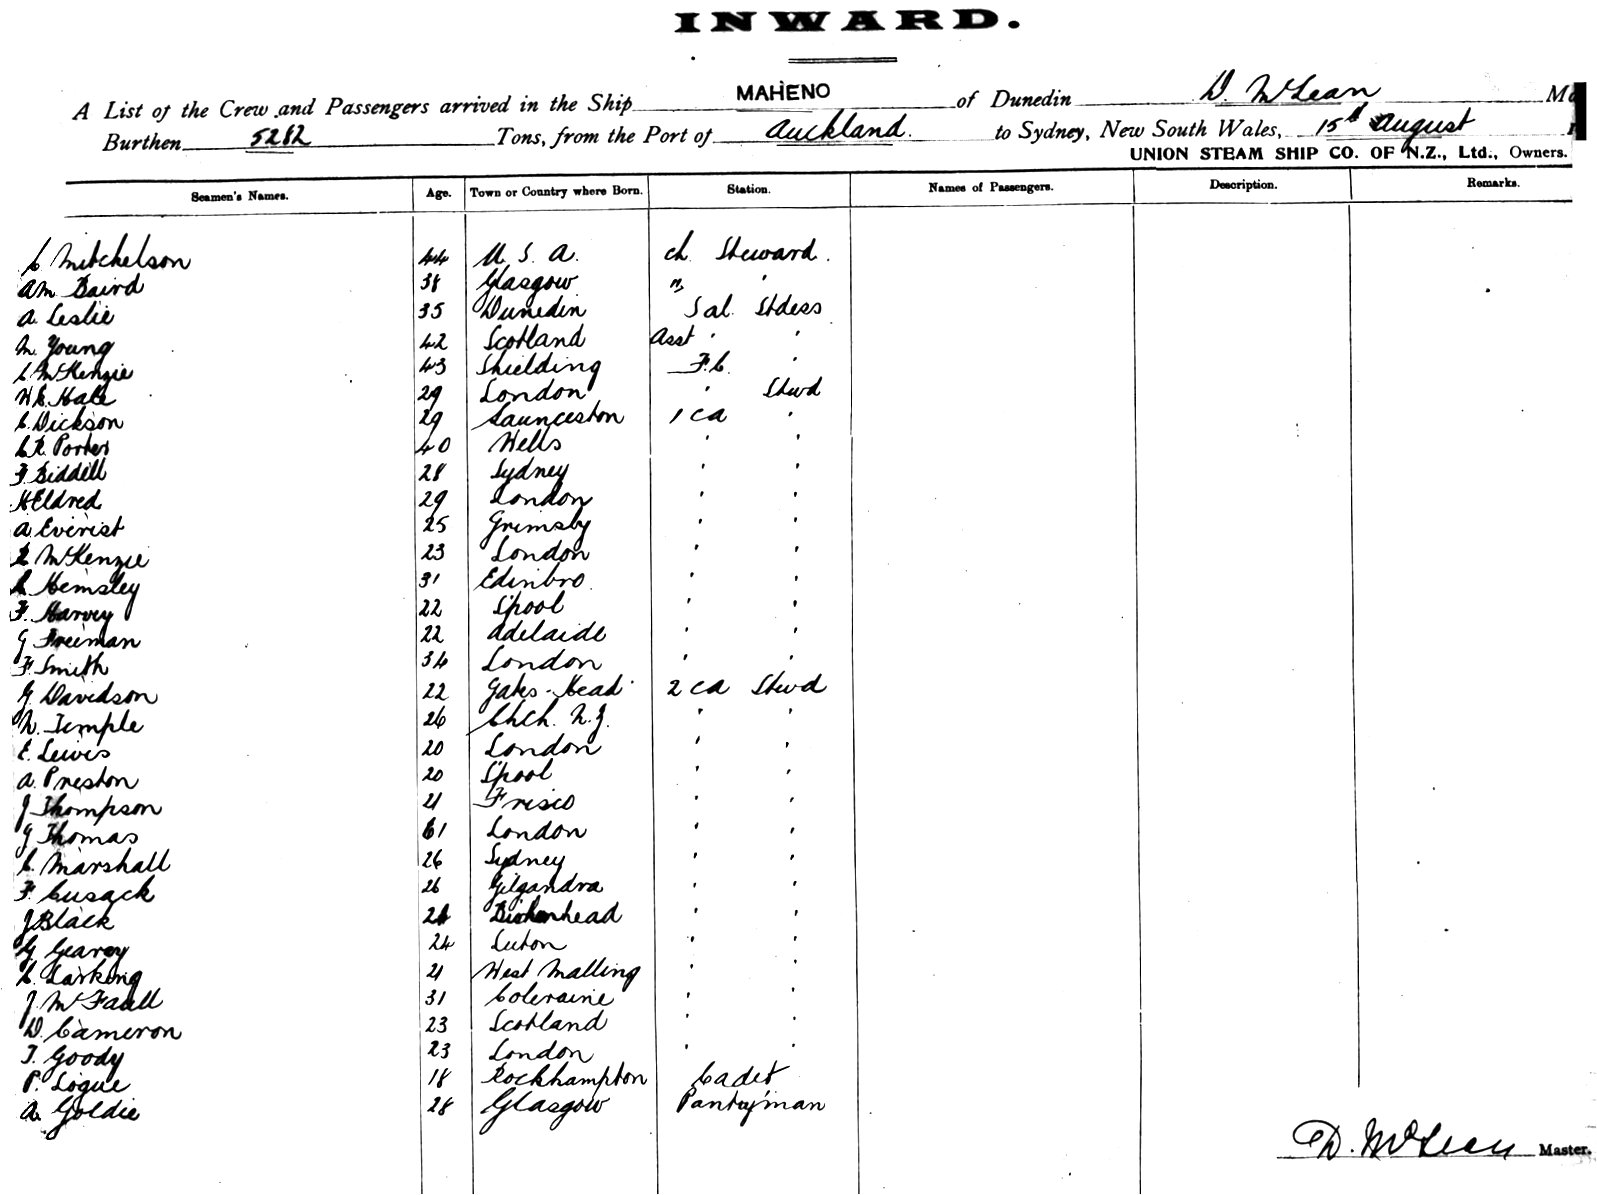 INWARD.
A List of the Crew and Passengers arrived in the Ship MAHENO of Dunedin D. McLean
Burthen 5282 Tons, from the Port of Auckland. to Sydney, New South Wales, 15th August
UNION STEAM SHIP CO. OF N.Z., Ltd., Owners.
Seamen's Names. Age. Town or Country where Born. Station. Names of Passengers. Description. Remarks.
C Mitchelson 44 U. S. A. Ch Steward.
AM Baird 38 Glasgow " '
A. Leslie 35 Dunedin Sal. Stdess
M. Young 42 Scotland Asst ' '
C McKenzie 43 Shielding F.C. '
H.E. Hale 29 London ' Stwd
C. Dickson 29 Launceston 1 Ca '
C.R. Porter 40 Wells ' '
F. Biddell 28 Sydney ' '
H Eldred 29 London ' '
A Everist 25 Grimsby ' '
R McKenzie 23 London ' '
R Hemsley 31 Edinbro ' '
F. Harvey 22 L'pool ' '
G Freeman 22 Adelaide ' '
F. Smith 34 London ' '
G. Davidson 22 Gates-Head 2 Ca Stwd
N. Temple 26 Chch. N.Z. ' '
E. Lewis 20 London ' '
A. Preston 20 L'pool ' '
J Thompson 21 Frisco ' '
G Thomas 61 London ' '
C. Marshall 26 Sydney ' '
F. Cusack 26 Gilgandra ' '
J Black Birkenhead ' '
G. Gearey 24 Luton ' '
L. Larking 21 West Malling ' '
J. McFaull 31 Coleraine ' '
D. Cameron 23 Scotland ' '
T. Goody 23 London ' '
P. Logue 18 Rockhampton Cadet
A. Goldie 28 Glasgow Pantryman
D. McLean Master.